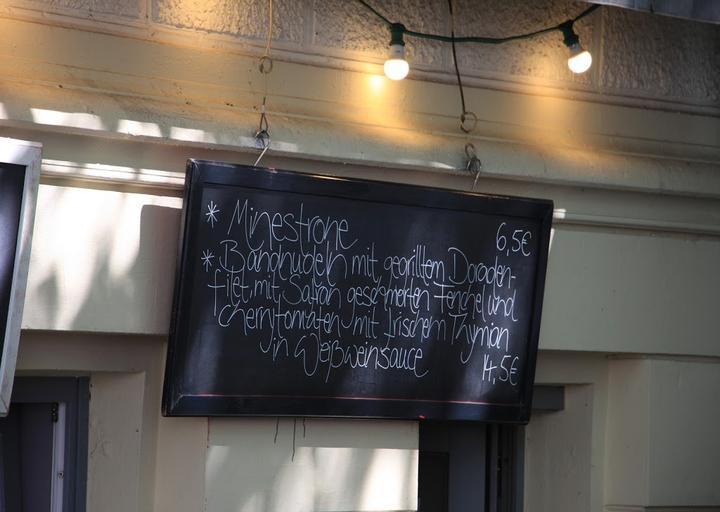 * Minestrone 6,5€
* Bandnudeln mit gegrilltem Doraden-
filet, mit Safran geschmorten Fenchel und
Cherrytomaten mit frischem Thymian
in Weißweinsauce 14,5€